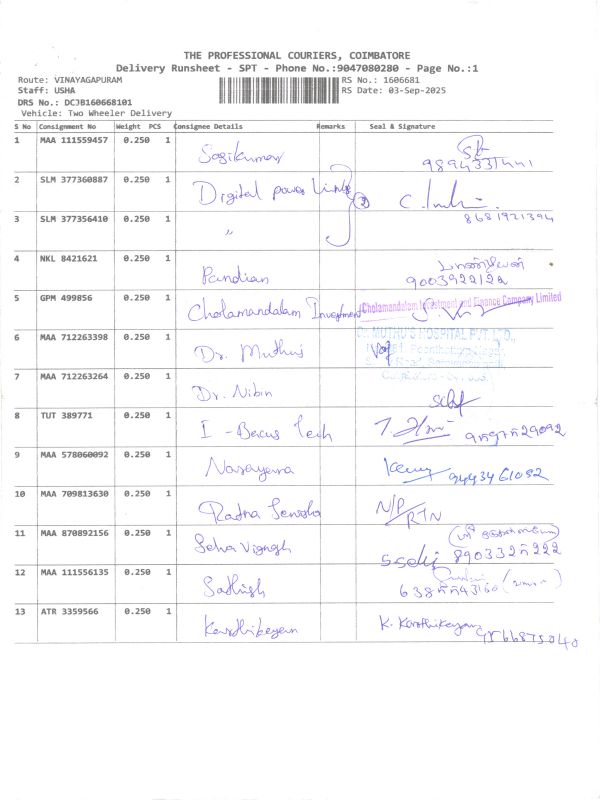 THE PROFESSIONAL COURIERS, COIMBATORE
Delivery Runsheet - SPT - Phone No.:9047080280 - Page No.:1
Route: VINAYAGAPURAM RS No.: 1606681
Staff: USHA RS Date: 03-Sep-2025
DRS No.: DCJB160668101
Vehicle: Two Wheeler Delivery
S No Consignment No Weight PCS Consignee Details Remarks Seal & Signature
1 MAA 111559457 0.250 1 Sasikumar
2 SLM 377360887 0.250 1 Digital power Links 2
3 SLM 377356410 0.250 1 " 8681921394
4 NKL 8421621 0.250 1 Pandian 9003922122
5 GPM 499856 0.250 1 Cholamandalam Investment Cholamandalam Investment and Finance Company Limited
6 MAA 712263398 0.250 1 Dr. Muthus Dr. MUTHU'S HOSPITAL PVT. LTD.,
7 MAA 712263264 0.250 1 Dr. Nibin
8 TUT 389771 0.250 1 I - Becus Tech
9 MAA 578060092 0.250 1 Narayana 9443461052
10 MAA 709813630 0.250 1 Ratna N/P RTN
11 MAA 870892156 0.250 1 Selva Vignesh
12 MAA 111556135 0.250 1 Sathish
13 ATR 3359566 0.250 1 Karthikeyan K. Karthikeyan